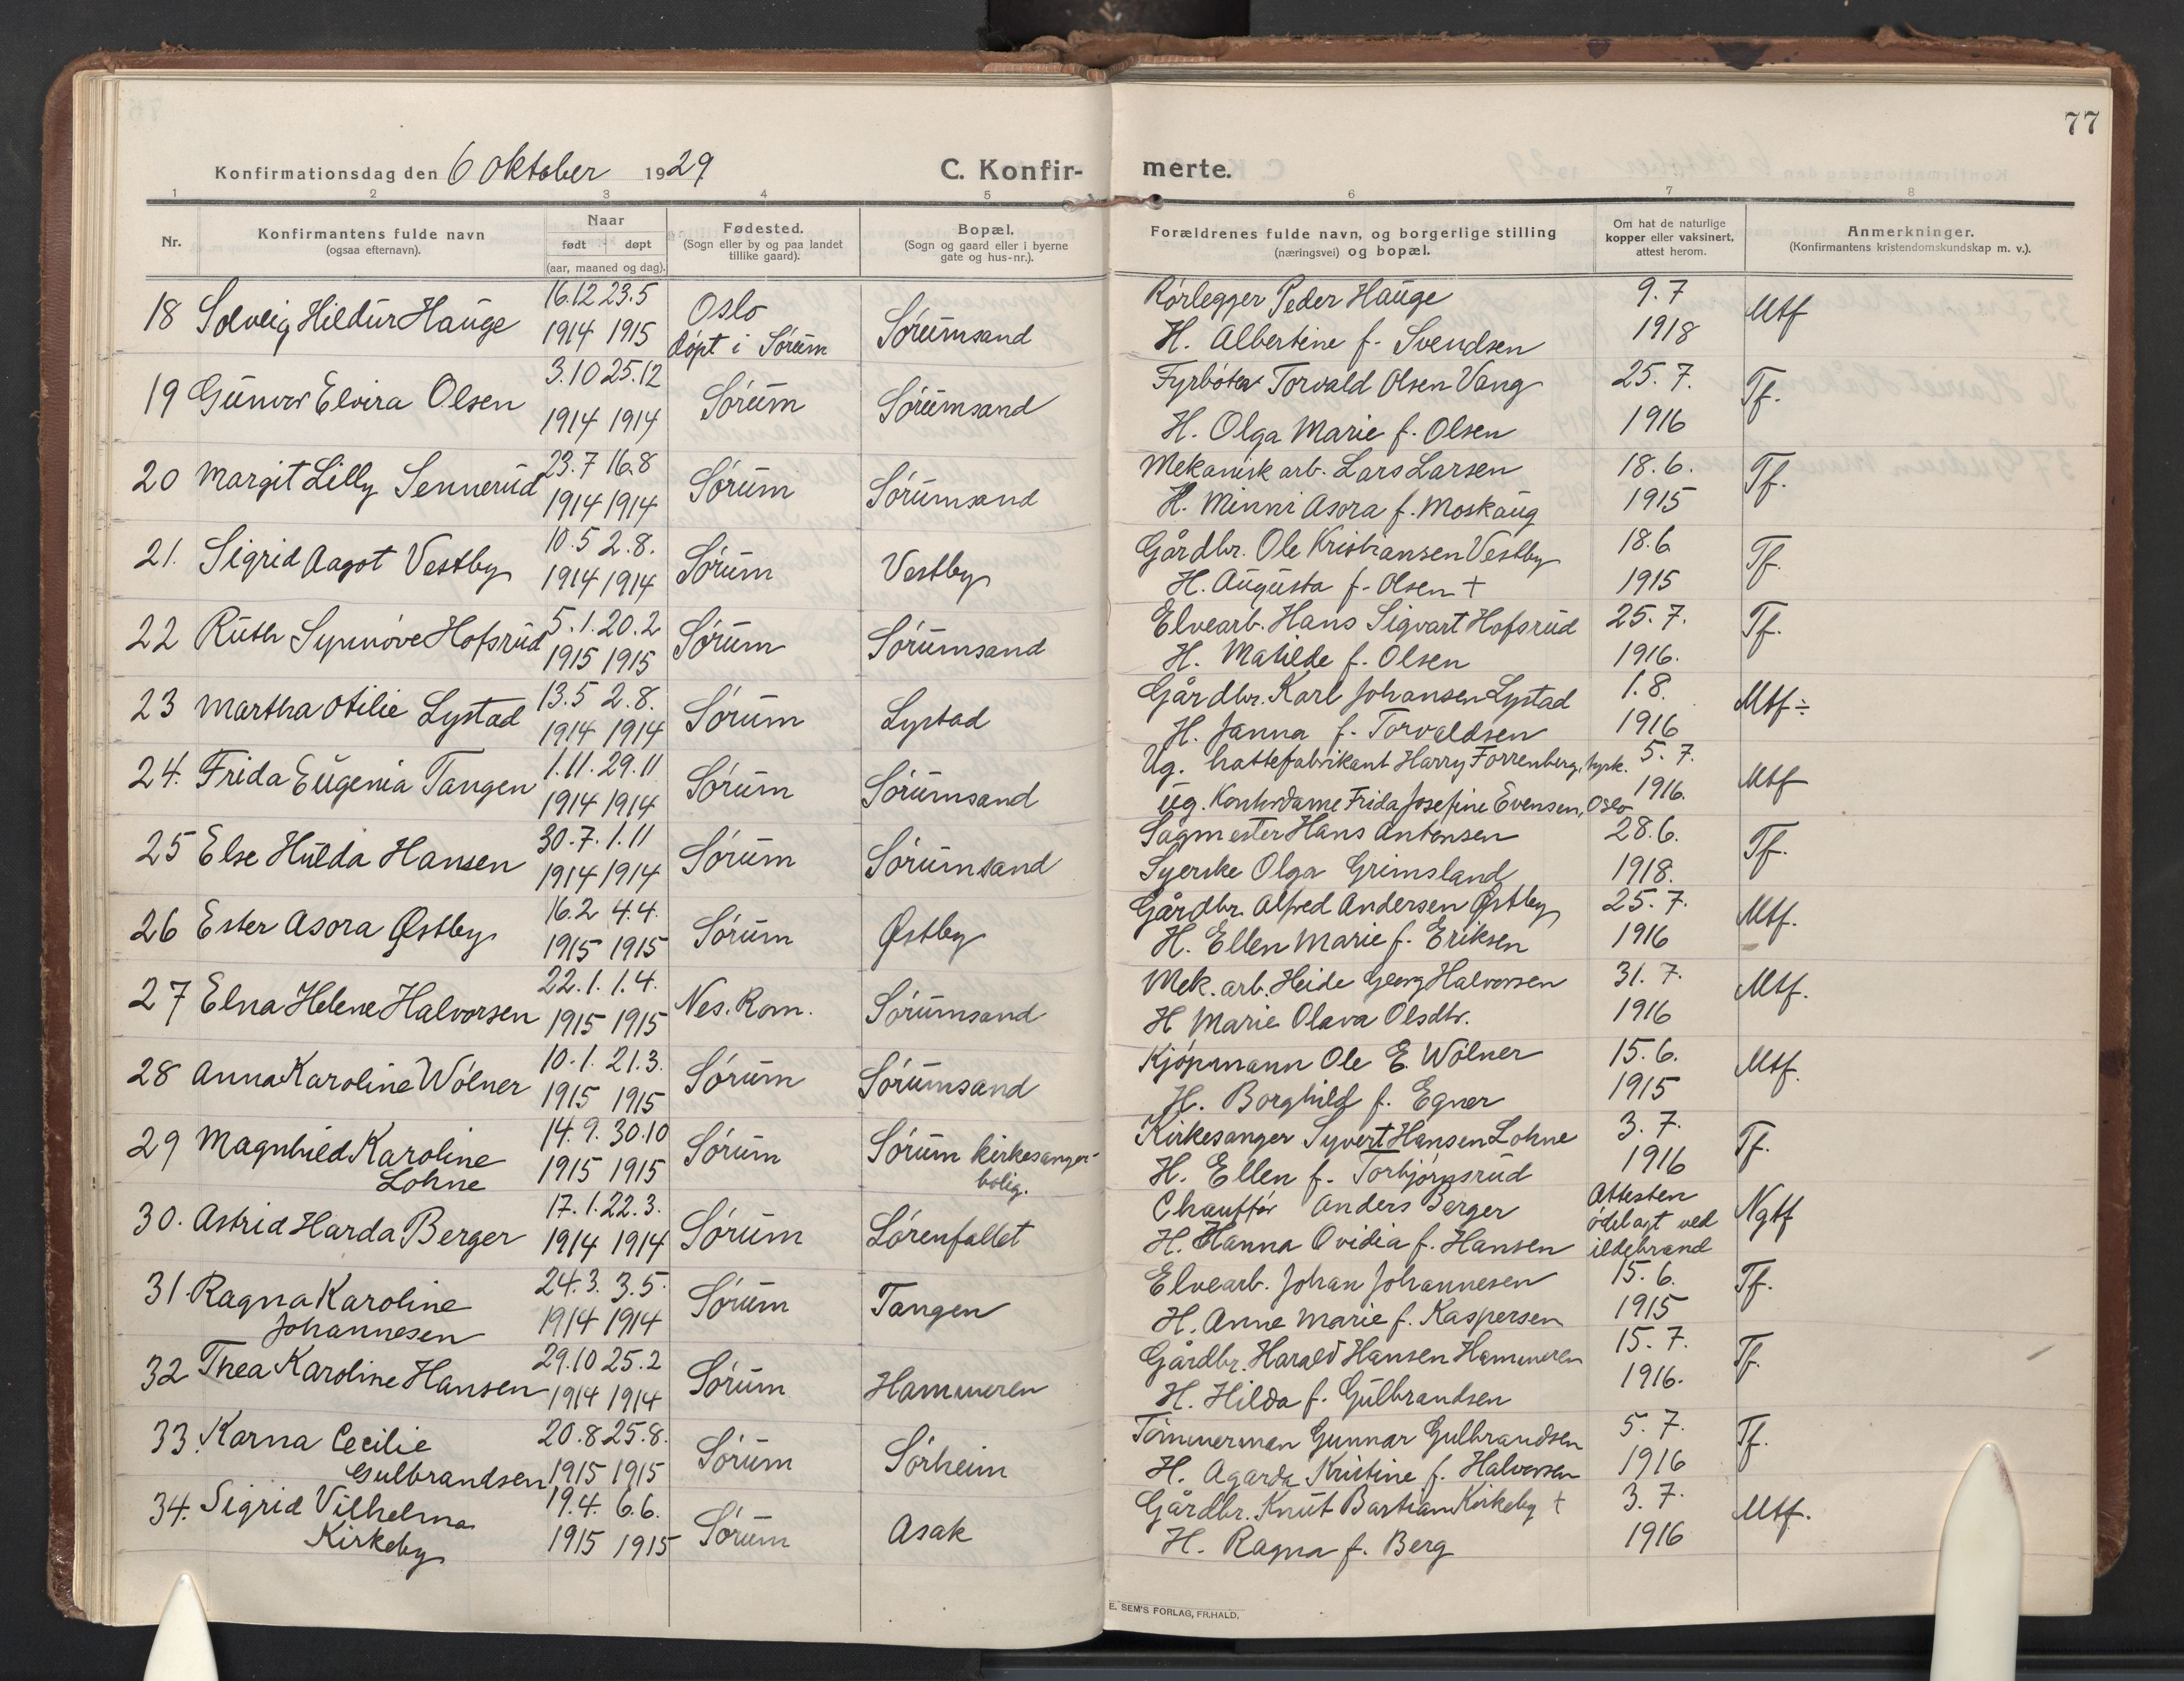 77
Konfirmationsdag den 6 oktober 1929
C. Konfir-
merte.
1 2 3 4 5 6 7 8
Nr.
Konfirmantens fulde navn
(ogsaa efternavn).
Naar
født døpt
(aar, maaned og dag).
Fødested.
(Sogn eller by og paa landet
tillike gaard).
Bopæl.
(Sogn og gaard eller i byerne
gate og hus-nr.).
Forældrenes fulde navn, og borgerlige stilling
(næringsvei) og bopæl.
Om hat de naturlige
kopper eller vaksinert,
attest herom.
Anmerkninger.
(Konfirmantens kristendomskundskap m. v.).
16.12 23.5 Oslo Rørlegger Peder Hauge 9.7
18 Solveig Hildur Hauge 1914 1915 døpt i Sørum Sørumsand H. Albertine f. Svendsen 1918 Mtf
3.10 25.12 Fyrbøter Torvald Olsen Vang 25.7.
19 Gunvor Elvira Olsen 1914 1914 Sørum Sørumsand H. Olga Marie f. Olsen 1916 Tf.
23.7 16.8 Mekanisk arb. Lars Larsen 18.6.
20 Margit Lilly Sennerud 1914 1914 Sørum Sørumsand H. Minni Asora f. Moskaug 1915 Tf.
10.5 2.8. Gårdbr. Ole Kristiansen Vestby 18.6
21. Sigrid Aagot Vestby 1914 1914 Sørum Vestby H. Augusta f. Olsen + 1915 Tf.
5.1. 20.2 Elvearb. Hans Sigvart Hofsrud 25.7.
22 Ruth Synnøve Hofsrud 1915 1915 Sørum Sørumsand H. Matilde f. Olsen 1916. Tf.
13.5 2.8. Gårdbr. Karl Johansen Lystad 1.8.
23 Martha Otilie Lystad 1914 1914 Sørum Lystad H. Janna f. Torvaldsen 1916 Mtf ÷
1.11. 29.11 Ug. hattefabrikant Harry Forrenberg, tysk. 5.7.
24. Frida Eugenia Tangen 1914 1914 Sørum Sørumsand ug. Kontordame Frida Josefine Evensen, Oslo 1916. Mtf
30.7. 1.11 Sagmester Hans Antonsen 28.6.
25 Else Hulda Hansen 1914 1914 Sørum Sørumsand Syerske Olga Grimsland 1918. Tf.
16.2 4.4. Gårdbr. Alfred Andersen Østby 25.7.
26 Ester Asora Østby 1915 1915 Sørum Østby H. Ellen Marie f. Eriksen 1916 Mtf.
22.1. 1.4. Mek. arb. Heide Georg Halvorsen 31.7.
27 Elna Helene Halvorsen 1915 1915 Nes. Rom. Sørumsand H Marie Olava Olsdtr. 1916 Mtf.
10.1. 21.3. Kjøpmann Ole E. Wølner 15.6.
28 Anna Karoline Wølner 1915 1915 Sørum Sørumsand H. Borghild f. Egner 1915 Mtf.
14.9. 30.10 Kirkesanger Syvert Hansen Lohne 3.7.
29 Magnhild Karoline 1915 1915 Sørum Sørum kirkesanger- H. Ellen f. Torbjørnsrud 1916 Tf.
Lohne bolig.
17.1. 22.3. Chauffør Anders Berger Attesten
30. Astrid Harda Berger 1914 1914 Sørum Lørenfallet H. Hanna Ovidia f. Hansen ødelagt ved Ngtf
ildebrand
24.3. 3.5. Elvearb. Johan Johannesen 15.6.
31 Ragna Karoline 1914 1914 Sørum Tangen H. Anne Marie f. Kaspersen 1915 Tf.
Johannesen
29.10 25.2 Gårdbr. Harald Hansen Hammeren 15.7.
32 Thea Karoline Hansen 1914 1914 Sørum Hammeren H. Hilda f. Gulbrandsen 1916. Tf.
20.8 25.8. Tømmerman Gunnar Gulbrandsen 5.7.
33. Karna Cecilie 1915 1915 Sørum Sørheim H. Agarda Kristine f. Halvorsen 1916 Tf.
Gulbrandsen
19.4. 6.6. Gårdbr. Knut Bastian Kirkeby + 3.7.
34. Sigrid Vilhelma 1915 1915 Sørum Asak H. Ragna f. Berg 1916 Mtf.
Kirkeby
E. SEM'S FORLAG, FR.HALD.